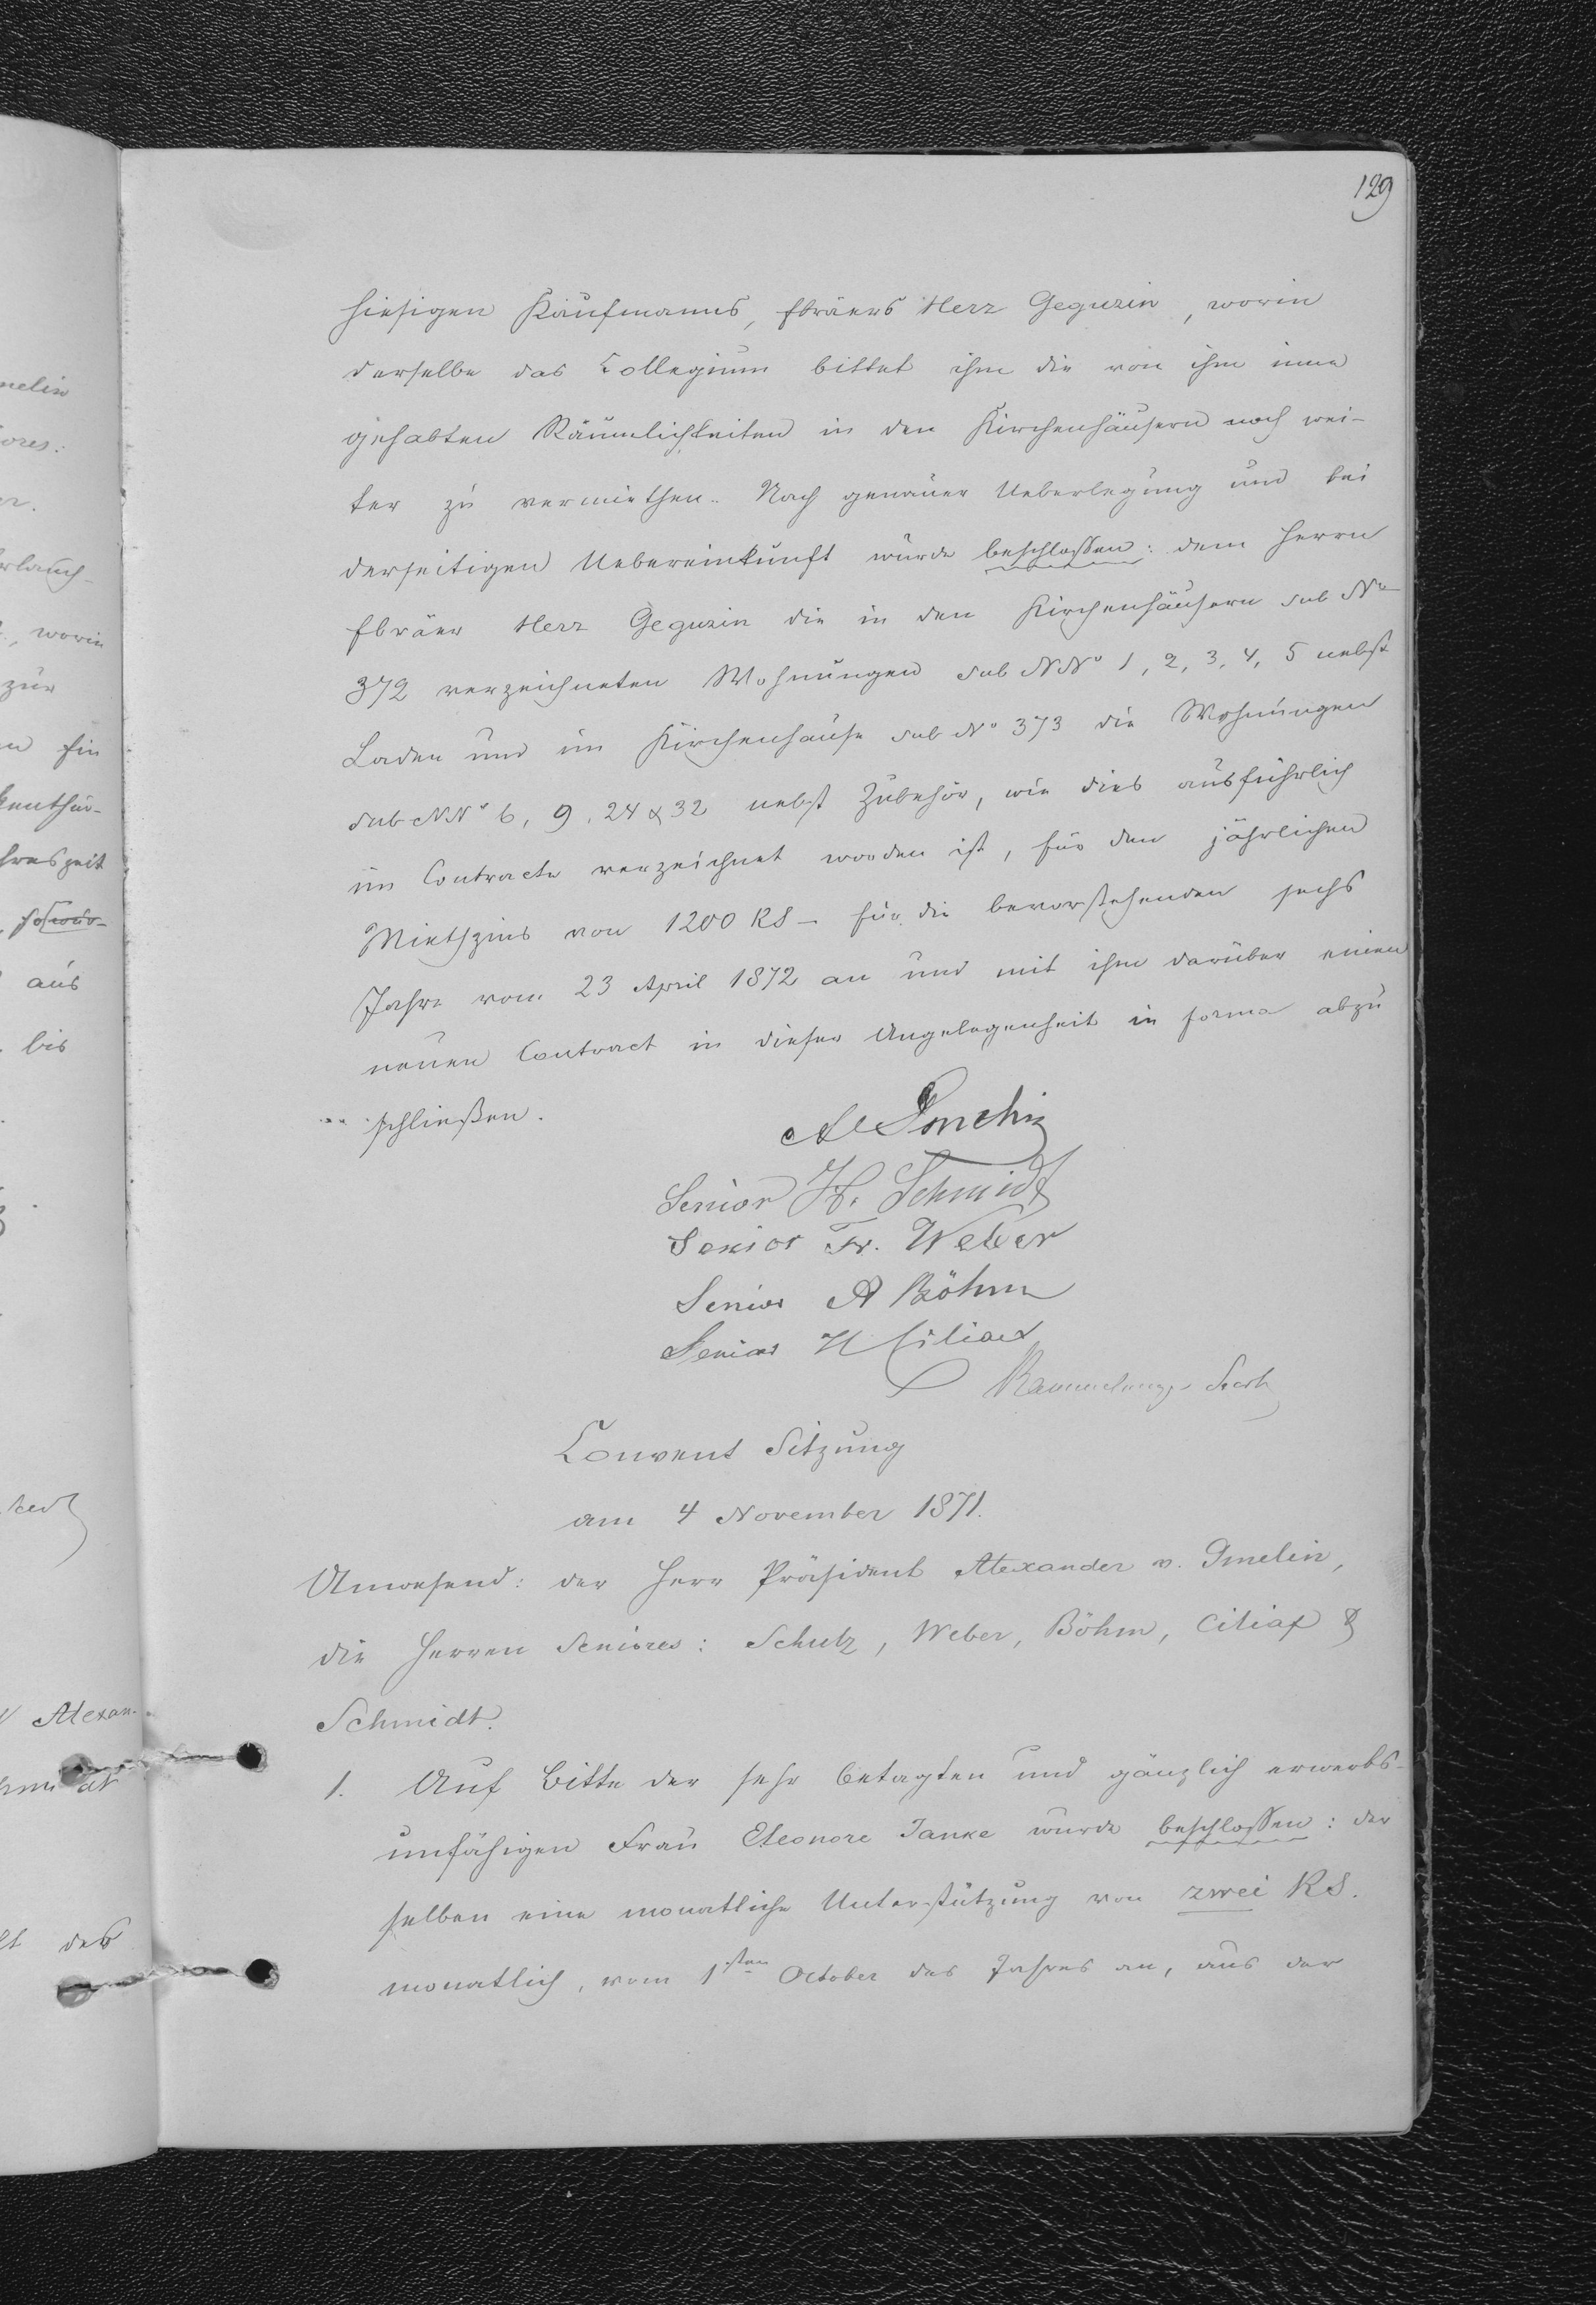 129
hiesigen Kaufmanns, Ebräers Herz Geguzin, worin
derselbe das Collegium bittet ihm die von ihm inne
gehabten Räumlichkeiten in den Kirchenhäusern noch wei-
ter zu vermiethen. Nach genauer Ueberlegung und bei
derseitigen Uebereinkunft wurde beschlossen: dem Herrn
Ebräer Herz Geguzin die in den Kirchenhäusern sub No
372 verzeichneten Wohnungen sub NNo 1, 2, 3, 4, 5 nebst
Laden und im Kirchenhause sub No 373 die Wohnungen
sub NNo 6, 9, 24 & 32 nebst Zubehör, wie dies ausführlich
im Contracte verzeichnet worden ist, für den jährlichen
Miethzins von 1200 RS – für die bevorstehenden sechs
Jahre vom 23 April 1872 an und mit ihm darüber einen
neuen Contract in dieser Angelegenheit in forma abzu
schließen.
Senior H. Schmidt
Senior Fr. Weber
Senior A Böhm
Senior H Ciliax
Secrt
Convent Sitzung
am 4 November 1871.
Anwesend: der Herr Präsident Alexander v. Gmelin,
die Herren Seniores: Schulz, Weber, Böhm, Ciliax &
Schmidt.
1. Auf Bitte der sehr betagten und gänzlich erwerbs-
unfähigen Frau Eleonore Janke wurde beschlossen: der
selben eine monatliche Unterstützung von zwei RS.
monatlich, vom 1sten October des Jahres an, aus der